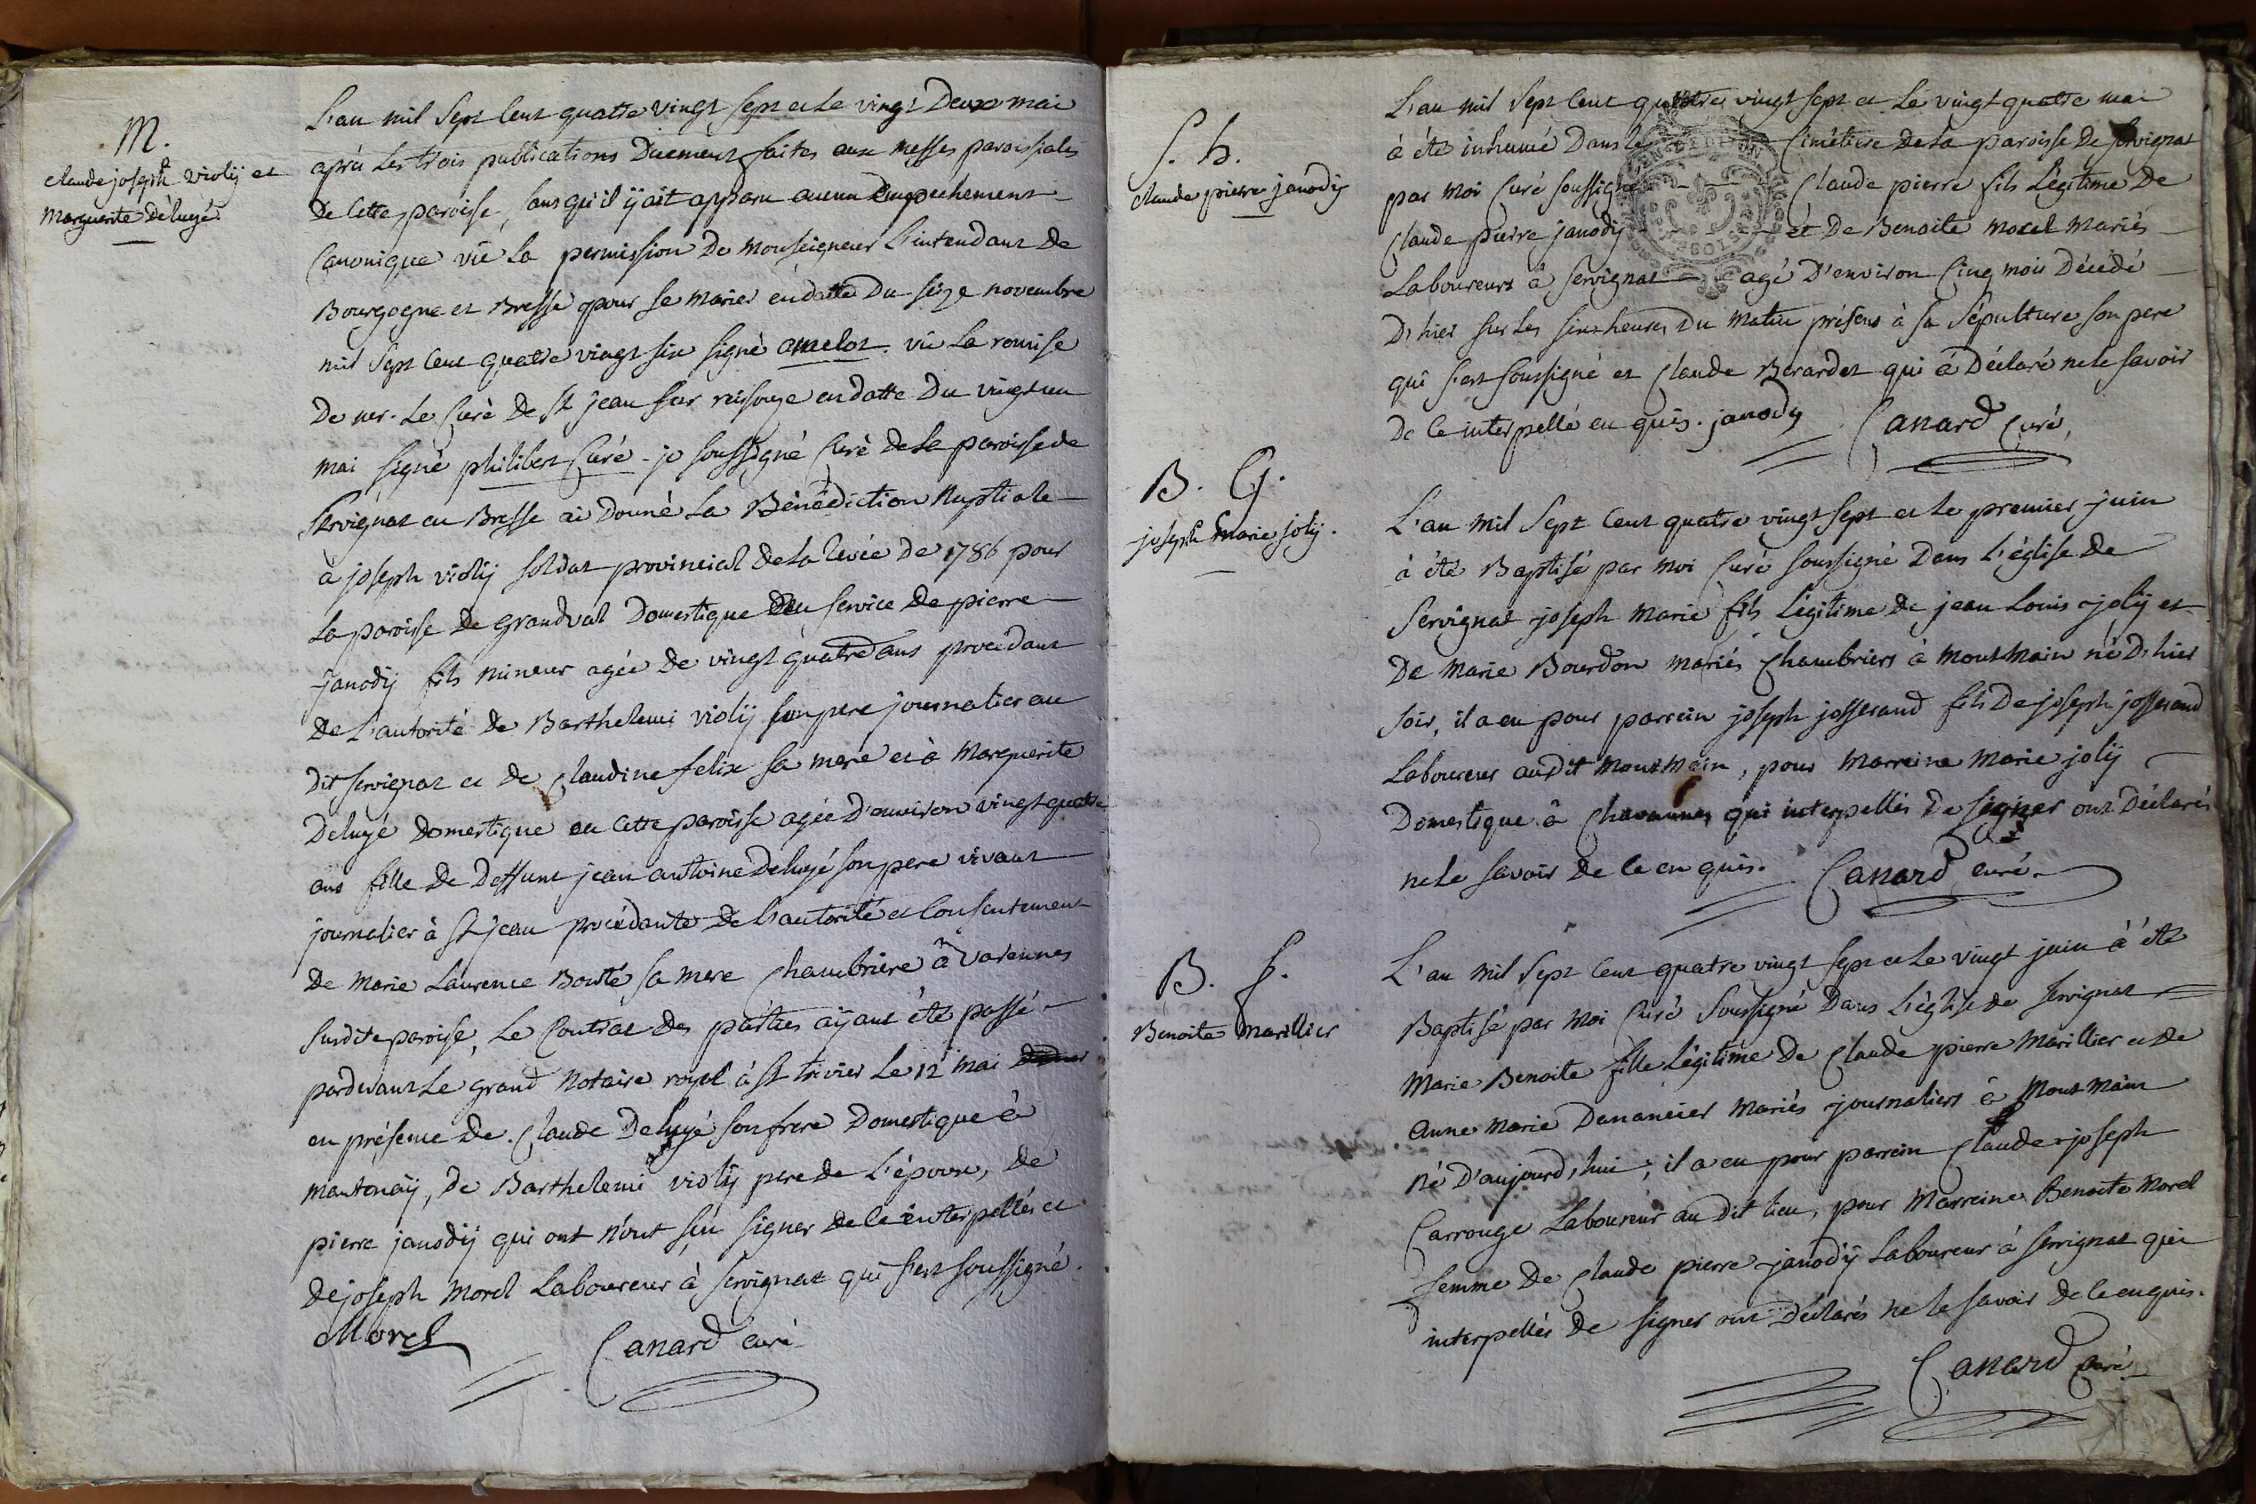 M.
Claude joseph violij et
Marguerite Déluyé
L'an mil sept cent quatre vingt sept et le vingt Deux mai
après les trois publications Duement faites aux messes paroissiales
De Cette paroisse, sans qu'il ÿ ait apparu aucun Empechement
Canonique vû la permission De Monseigneur L'intendant de
Bourgogne et Bresse pour se marier en datte Du seize novembre
mil sept cent quatre vingt six signé amelot. vû la remise
De mr. Le Curé De st jean sur reissouze en datte Du vingt un
mai signé philibert Curé. je soussigné Curé de la paroisse de
Servignat en Bresse ai Donné La Bénédiction Nuptiale
à joseph violij soldat provincial de la levée De 1786 pour
La paroisse De grandval Domestique au service De pierre
Janodij fils mineur agée de vingt quatre ans procédant
De L'autorité De Barthelemi violij son pere journalier au
Dit servignat et De Claudine felix sa mere et à Marguerite
Deluyé Domestique en Cette paroisse agée D'environ vingt quatre
ans fille De Deffunt jean antoine Deluyé son pere vivant
journalier à st jean procédante De L'autorité et Consentement
De Marie Laurence Bouté sa mere Chambriere à Varennes
susdite paroisse, Le Contrat Des parties aÿant été passé
pardevant Le grand Notaire royal à st trivier Le 12 mai
en présence De Claude Deluyé son frere Domestique à
mantenaÿ, De Barthelemi violij pere De L'époux, De
pierre janodij qui ont n'ont sçu signer de ce interpellés et
De joseph Morel Laboureur à Servignat qui s'est soussigné.
Morel Canard Curé
S. h.
Claude pierre janodij
L'an mil sept cent quatre vingt sept et Le vingt quatre mai
à été inhumé Dans le Cimétiere De La paroisse De servignat
par Moi Curé soussigné Claude pierre fils Légitime De
Claude pierre janodij et De Benoite morel Mariés
Laboureurs à servignat agé D'environ Cinq mois Décédé
D'hier sur Les six heures Du matin présens à sa Sépulture son pere
qui s'est soussigné et Claude Berardet qui à Déclaré ne le savoir
De Ce interpellé en quis. janody Canard Curé,
B. G.
joseph Marie joly.
L'an mil sept cent quatre vingt sept et le premier juin
à été Baptisé par Moi Curé soussigné Dans L'église De
Servignat joseph Marie fils Légitime De jean Louis jolij et
De Marie Bourdon mariés Chambriers à Montmain né D'hier
soir, il a eu pour parrein joseph josserand fils De joseph josserand
Laboureur audit Montmain, pour Marreine Marie jolij
Domestique à Chavannes qui interpellés De signer ont Déclarés
ne Le savoir de Ce en quis. Canard curé.
B. f.
Benoite Marillier
L'an Mil sept cent quatre vingt sept et Le vingt juin à été
Baptisé par Moi Curé soussigné Dans L'église de servignat
Marie Benoite fille Légitime De Claude pierre Marillier et De
Anne Marie Danancier Mariés journaliers à Montmain
né D'aujourd'hui, il a eu pour parrein Claude joseph
Carrouge Laboureur au Dit Lieu, pour Marreine Benoite Morel
femme De Claude pierre janodij Laboureur à servignat qui
interpellés De signer ont Déclarés ne le savoir de Ce en quis.
Canard curé